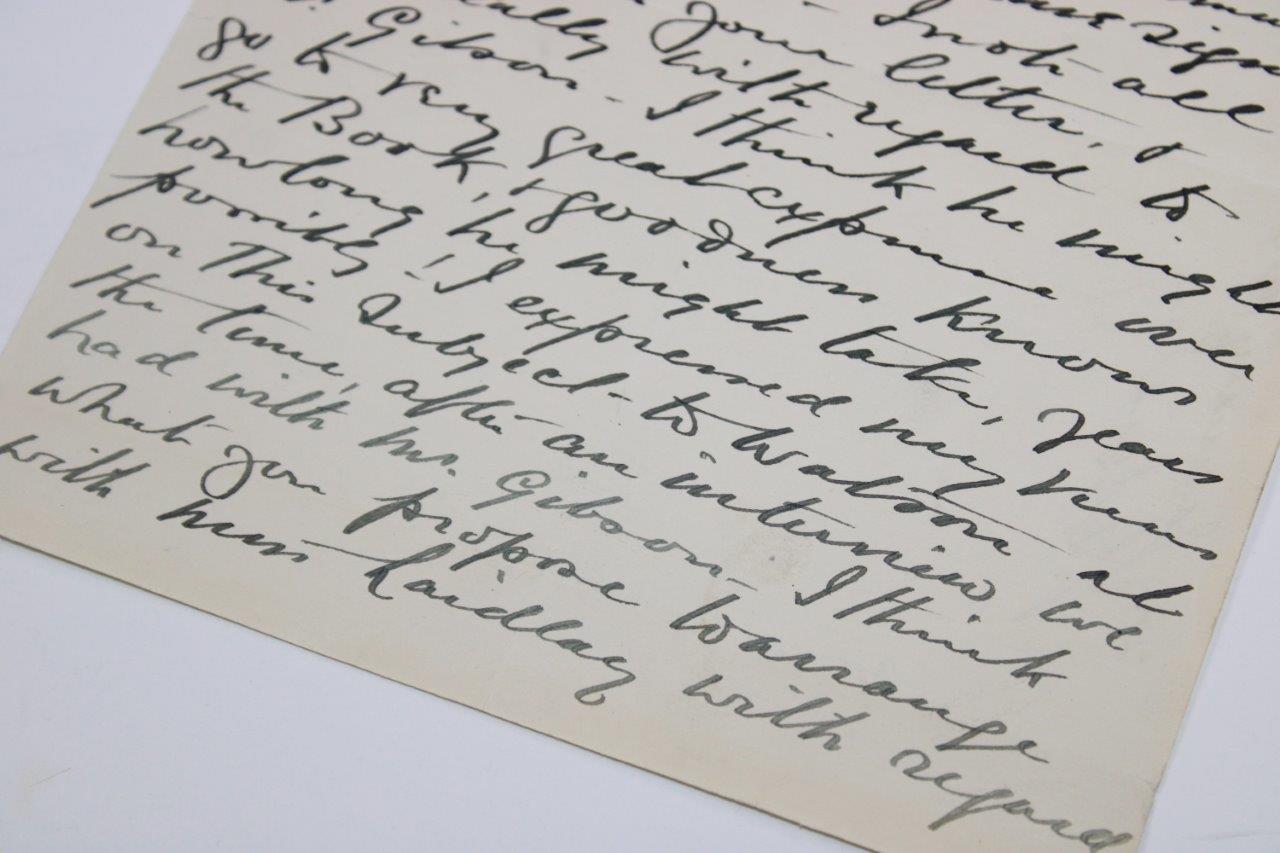 sign
I not all
your letter, &
ally with regard to
Gibson - I think he might
go to very great expense over
the Book, & goodness knows
how long he might take, years
possibly -! I expressed my views
on this subject - to Watson at
the time, after an interview we
had with Mr. Gibson - I think
what you propose to arrange
with Miss Laidlay with regard